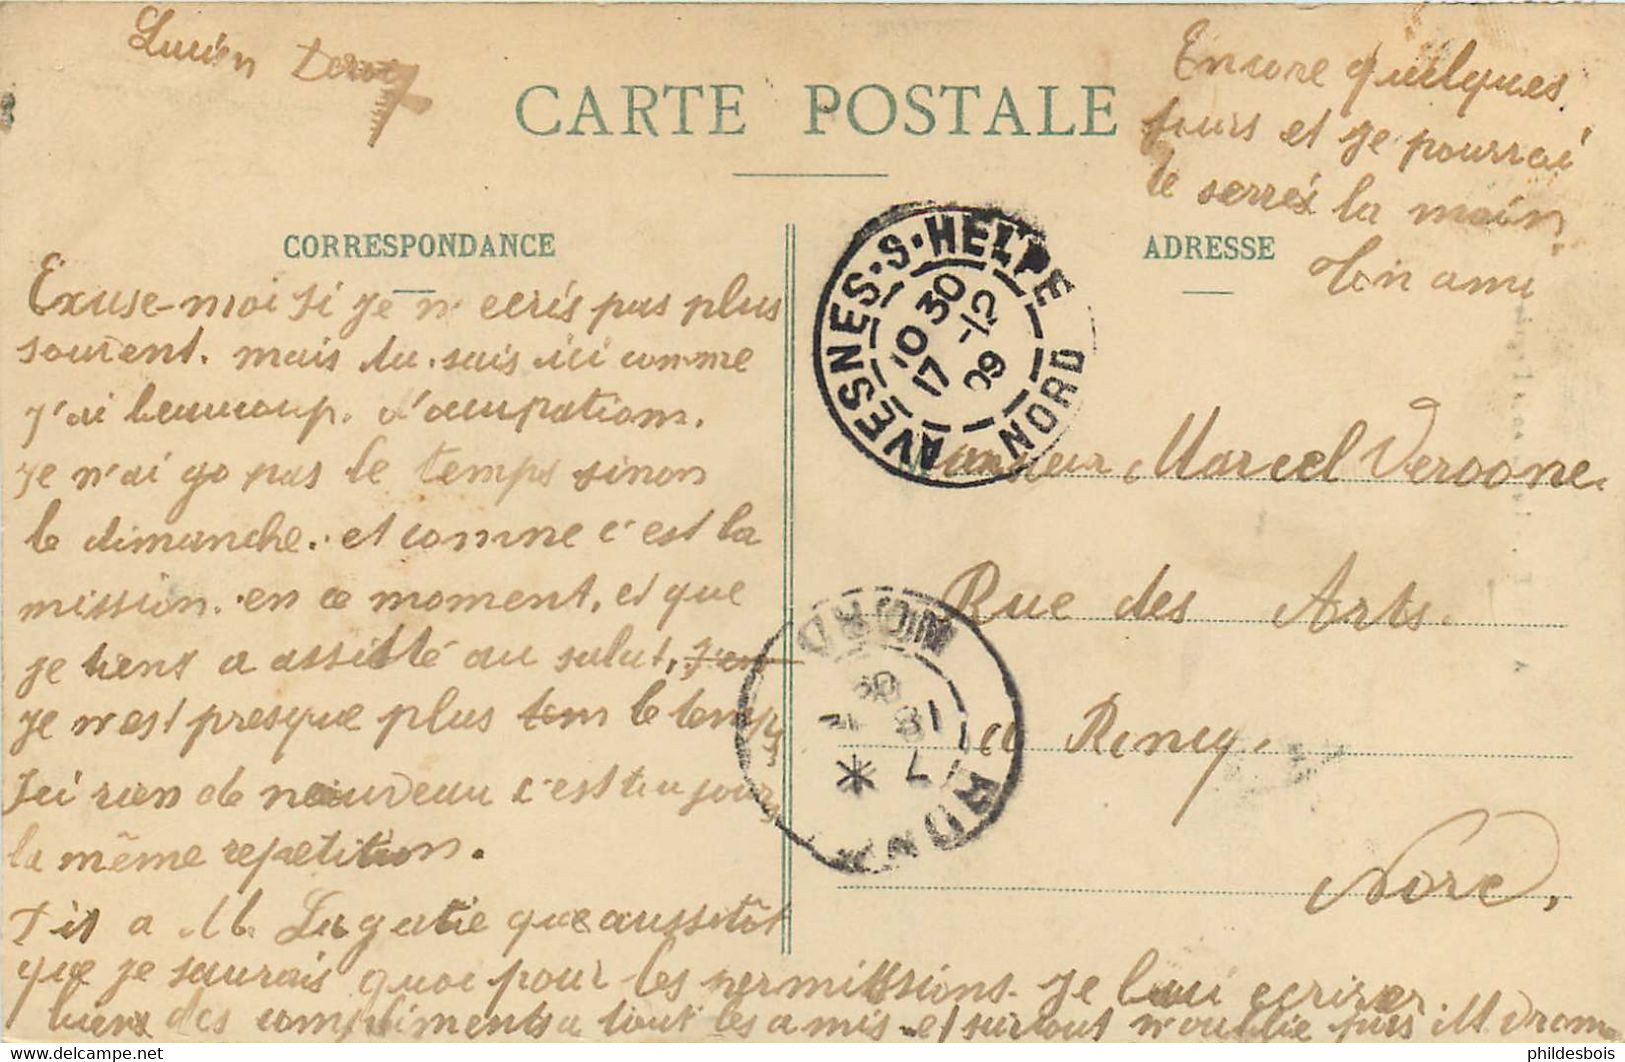 Lucien
CARTE POSTALE
Encore quelques
jours et je pourrai
te serrer la main.
Ton ami
CORRESPONDANCE
ADRESSE
Exuse-moi si je n'ecris pas plus
souvent. mais tu sais ici comme
j'ai beaucoup. d'ocupations.
je n'ai go pas le temps sinon
le dimanche. et comme c'est la
mission. en ce moment, et que
je tiens a assisté au salut, j'en
je n'est presque plus tem le temps
J'ai rien de nouveau c'est toujours
la même repetition.
Dit a M. Lagatie que aussitôt
que je saurais quoi pour les permissions. je lui ecrirer.
bien des compliments a tout les amis et surtout n'oublie pas M Vrom
AVESNES-S-HELPE
NORD
10 30
17 -12
09
Monsieur Marcel Veroone.
Rue des Arts.
a Roncq.
Nord,
NORD
18
7
phildesbois